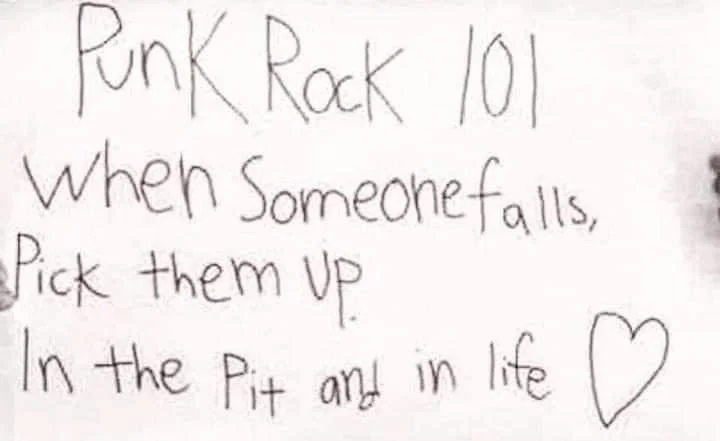 Punk Rock 101
when Someone falls,
Pick them up.
In the Pit and in life